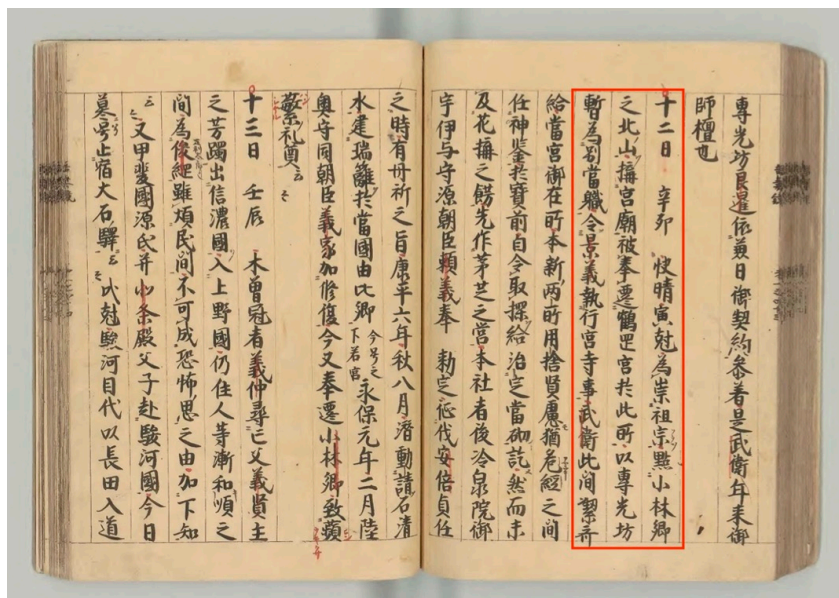 専光坊良暹依兼日御契約参着是武衛年来御
師檀也
十二日 辛卯 快晴寅尅為崇祖宗點小林郷
之北山搆宮廟被奉遷鶴罡宮於此所以専光坊
暫為別當職令景義執行宮寺事武衛此間潔斎
給當宮御在所本新両所用捨賢慮猶危経之間
任神鑒於寶前自令取探給治定當砌訖然而未
及花搆之餝先作茅茨之営本社者後冷泉院御
宇伊与守源朝臣頼義奉 勅定征伐安倍貞任
之時有丹祈之旨康平六年秋八月潜勧請石清
水建瑞籬於當國由比郷 今号之下若宮 永保元年二月陸
奥守同朝臣義家加修復今又奉遷小林郷致蘋
蘩礼奠云々
十三日 壬辰 木曽冠者義仲尋亡父義賢主
之芳躅出信濃國入上野國仍住人等漸和順之
間為俊綱雖煩民間不可成恐怖思之由加下知
云々又甲斐國源氏并北条殿父子赴駿河國今日
暮兮止宿大石驛云々戌尅駿河目代以長田入道